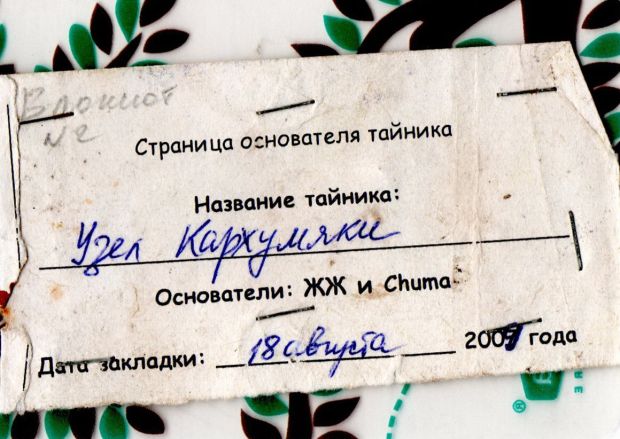 Блокнот
№2
Страница основателя тайника
Название тайника:
Узел Кархумяки
Основатели: ЖЖ и Chuma
Дата закладки: 18 августа 2009 года